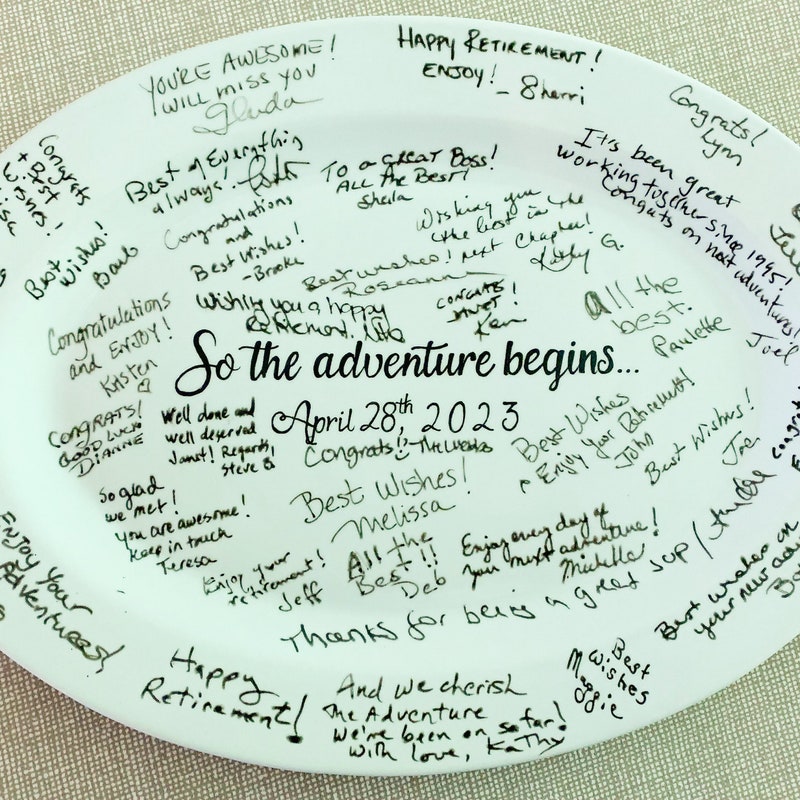 YOU'RE AWESOME!
WILL MISS YOU
Glenda
HAPPY RETIREMENT!
ENJOY!
- Sherri
Congrats!
Lynn
Congrats
+ Best
Wishes!
Best of Everything
always!
TO a GREAT Boss!
ALL THE BEST!
Sheila
It's been great
working together since 1995!
Congats on next adventures!
Joel
Best
Wishes!
Barb
Congratulations
and
Best Wishes!
-Brooke
Wishing you
the best in the
next Chapter!
Kathy G.
Best wishes!
Roseanne
Congratulations
and ENJOY!
Kristen
Wishing you a happy
Retirement.
CONGRATS
JANET!
Ken
all the
best.
Paulette
So the adventure begins...
April 28th, 2023
CONGRATS!
GOOD LUCK
DIANNE
Well done and
well deserved
Janet! Regards,
Steve B
Congrats! - The Weeks
Best Wishes
Enjoy Your Retirement!
John
Best Wishes!
Joe
So glad
we met!
you are awesome!
Keep in touch
Teresa
Best Wishes!
Melissa
Enjoy your
retirement!
Jeff
All the
Best!!
Deb
Enjoy every day of
your next adventure!
Michelle
Thanks for being a great sup /
Best wishes on
your new
ENJOY YOUR
Adventures!
Happy
Retirement!
And we cherish
The Adventure
We've been on so far!
With love, KaThy
Best
Wishes
Maggie